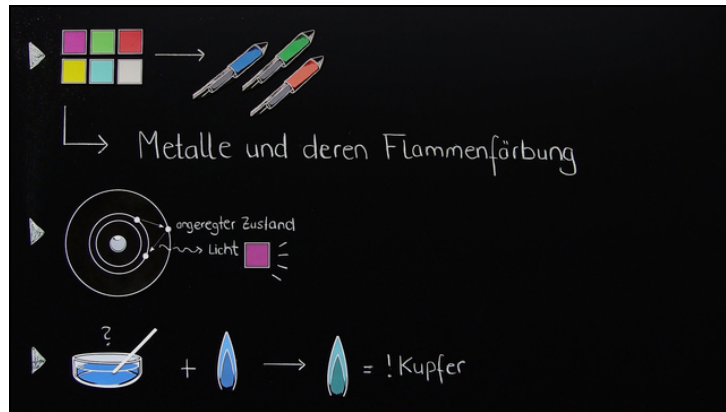 Metalle und deren Flammenförbung
angeregter Zustand
Licht
?
+ = ! Kupfer